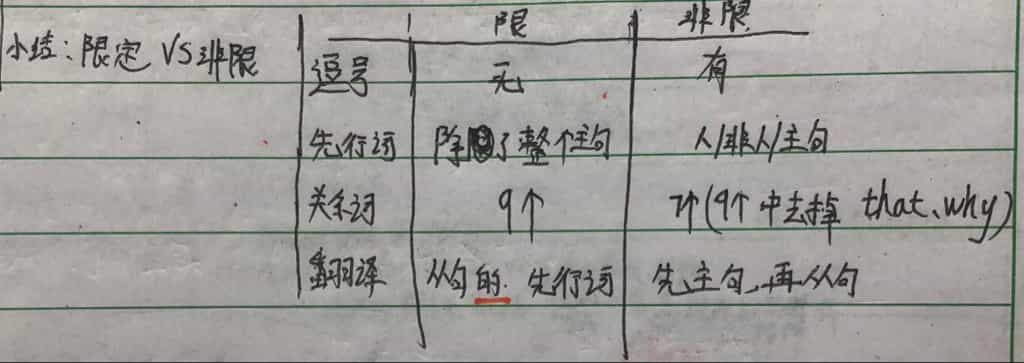 限 非限
小结：限定 VS 非限 逗号 无 有
先行词 除了整个主句 人/非人/主句
关系词 9个 7个(9个中去掉 that、why)
翻译 从句的 先行词 先主句,再从句